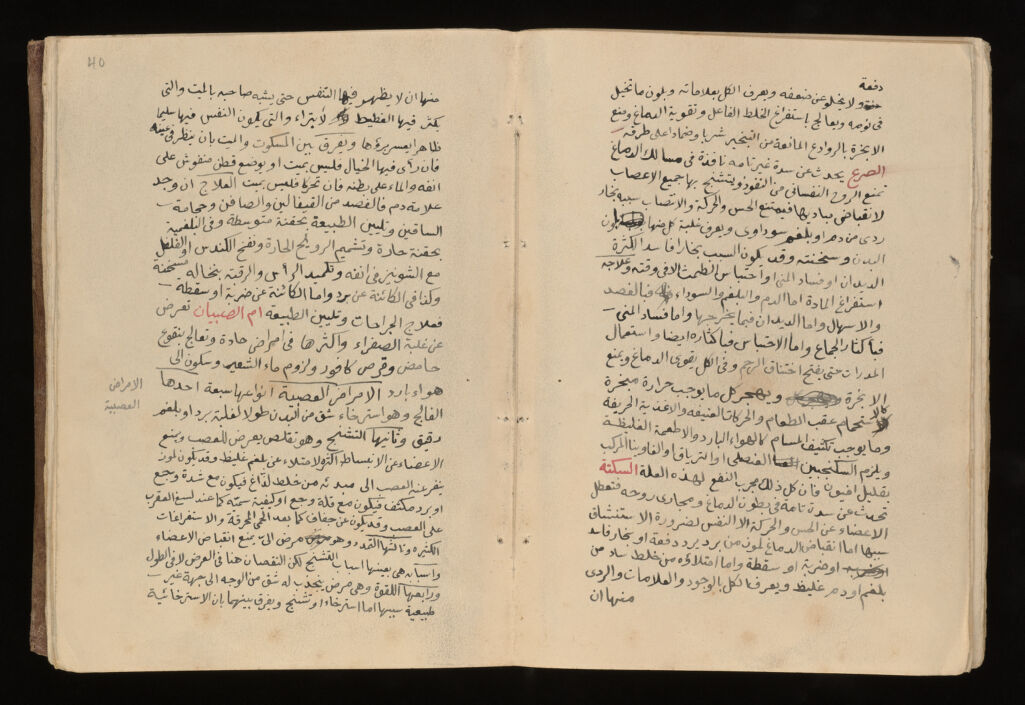 دفعة
ولا يخلو عن ضعفه ويعرف الكل بعلاماته ويلون ما تخيل
في نومه ويعالج باستفراغ الخلط الفاعل وتقوية الدماغ ومنع
الابخرة بالروادع المانعة من التبخير شربا وضمادا على طرفه
الصرع يحدث عن سدة غير تامه نافذة في مسالك الدماغ
تمنع الروح النفساني من النفوذ ويتشنج بها جميع الاعصاب
لانقباض مباديها فيمتنع الحس والحركة والانتصاب سببه بخار
ردى من دم او بلغم سوداوى ويعرف غلبة كل منها بلون
البدن وسخنته وقد يكون السبب بخارا فاسد الكثرة
الديدان او فساد المنى او احتباس الطمث لا في وقته وعلاجه
استفراغ المادة اما الدم والبلغم والسوداء فبالفصد
والاسهال واما الديدان فبما يخرجها واما فساد المنى
فباكثار الجماع واما الاحتباس فباكثاره ايضا واستعمال
المدرات حتى يفتح اختناق الرحم وفي الكل يقوى الدماغ ويمنع
الابخرة ويهجر كل ما يوجب حرارة مبخرة
كالاستحمام عقب الطعام والحركات العنيفه والاغذية الحريفة
وما يوجب تكثيف المسام كالهواء البارد والاطعمة الغليظة
ويلزم السكنجبين العنصلي او الترياق او الفاوينا المركب
بقليل افيون فان كل ذلك مجرب النفع لهذه العلة السكتة
تحدث عن سدة تامة في بطون الدماغ ومجارى روحه فتعطل
الاعضاء عن الحس والحركة الا النفس لضرورة الاستنشاق
سببها اما انقباض الدماغ لمون من برد يرد دفعة او بخار فاسد
او ضربة او سقطة واما امتلاؤه من خلط ساد من
بلغم او دم غليظ ويعرف الكل بالوجود والعلامات والردى
منها ان
40
منها ان لا يظهر فيها التنفس حتى يشبه صاحبه بالميت والتى
يكثر فيها الغطيط لا يبراء والتى يكون النفس فيها سليما
ظاهرا يسير برءها ويفرق بين المسكوت والميت بان ينظر في عينه
فان رأى فيها الخيال فليس بميت او يوضع قطن منفوش على
انفه والماء على بطنه فان تحركا فليس بميت العلاج ان وجد
علامة دم فالفصد من القيفالين والصافن وحجامة
الساقين وتليين الطبيعة بحقنة متوسطة وفي البلغمية
بحقنة حارة وتشميم الروائح الحارة ونفخ الكندس او الفلفل
مع الشونيز في انفه وتكميد الراس والرقبة بنخالة مسخنة
وكذا في الكائنة عن برد واما الكائنة عن ضربة او سقطة
فعلاج الجراحات وتليين الطبيعة ام الصبيان تعرض
عن غلبة الصفراء واكثرها في امراض حادة وتعالج بنقوع
حامض وقرص كافور ولزوم ماء الشعير وسكون الى
هواء بارد الامراض العصبية انواعها سبعة احدها
الفالج وهو استرخاء شق من البدن طولا لغلبة برد او بلغم
دقيق وثانيها التشنج وهو تقلص يعرض للعصب ويمنع
الاعضاء عن الانبساط واكثره لامتلاء عن بلغم غليظ وقد يكون لمون
ينفر عنه العصب الى مبدئه من خلط لذاغ فيكون مع شدة وجع
او برد مكثف فيكون مع قلة وجع او كيفية سمية كما عند لسع العقرب
على العصب وقد يكون عن جفاف كما بعد الحمى المحرقة والاستفراغات
الكثيره وثالثها التمدد وهو مرض الى يمنع انقباض الاعضاء
واسبابه هي بعينها اسباب التشنج لكن النقصان هنا في العرض لا في الطول
ورابعها اللقوة وهي مرض ينجذب له شق من الوجه الى جهة غير
طبيعية سببها اما استرخاء او تشنج ويفرق بينهما بان الاسترخائية
الامراض
العصبية